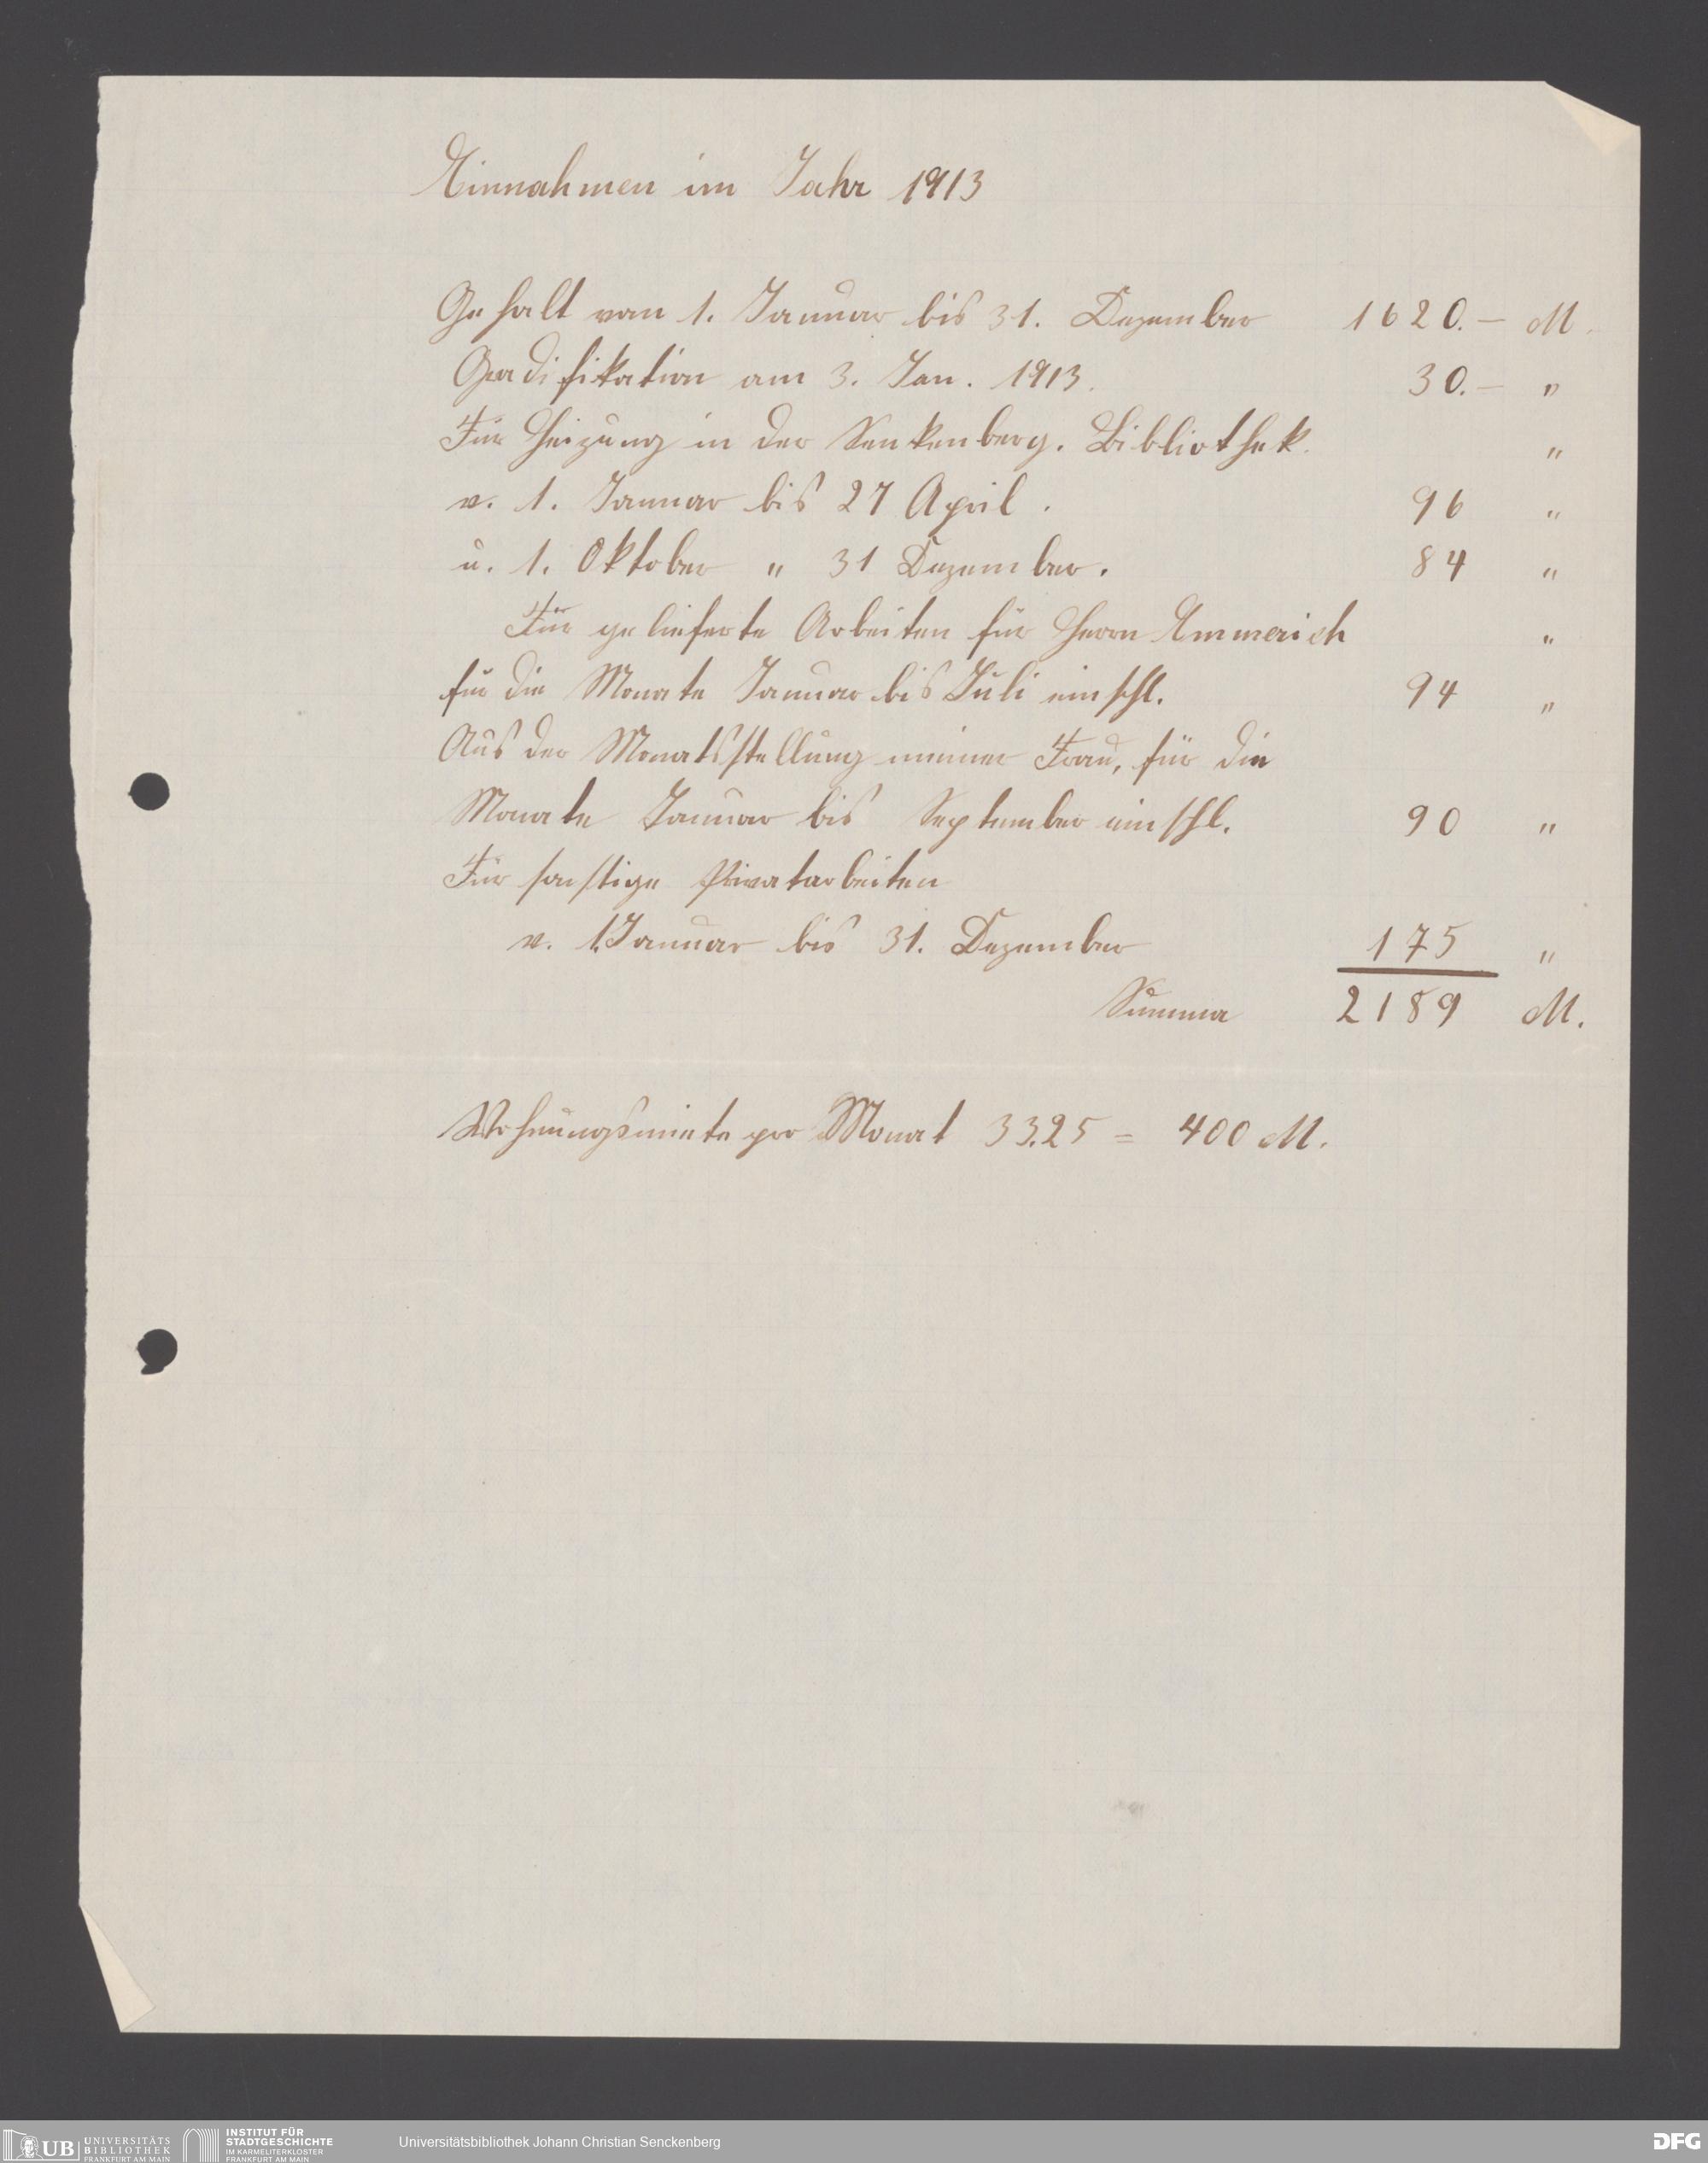 Einnahmen im Jahr 1913
Gehalt vom 1. Januar bis 31. Dezember 1620.– M.
Gradifikation am 3. Jan. 1913. 30.– "
Für Heizung in der Senkenberg. Bibliothek. "
v. 1. Januar bis 27 April. 96 "
u. 1. Oktober " 31 Dezember. 84 "
Für gelieferte Arbeiten für Herrn Emmerich "
für die Monate Januar bis Juli einschl. 94 "
Aus der Monatsstellung meiner Frau, für die
Monate Januar bis September einschl. 90 "
Für sonstige Privatarbeiten
v. 1. Januar bis 31. Dezember 175 "
Summa 2189 M.
Wohnungsmiete pro Monat 33.25 = 400 M.
UB UNIVERSITÄTS
BIBLIOTHEK
FRANKFURT AM MAIN
INSTITUT FÜR
STADTGESCHICHTE
IM KARMELITERKLOSTER
FRANKFURT AM MAIN
Universitätsbibliothek Johann Christian Senckenberg
DFG